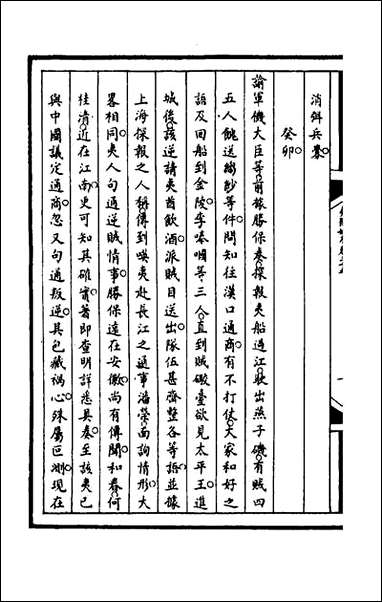 消弭兵釁
癸卯
諭軍機大臣等前據勝保奏探報夷船過江駛出燕子磯有賊四
五人餽送綢鈔等件問知往漢口通商有不打仗大家和好之
語及回船到金陵李嗶嘓等三人直到賊礮臺欲見太平王進
城後該逆請夷酋飲酒派賊目送出隊伍甚齊整各等語並據
上海探報之人稱傳到𠸄夷赴長江之通事潘榮面詢情形大
畧相同夷人句通逆賊情事勝保遠在安徽尚有傳聞和春何
桂清近在江南更可知其確實著即查明詳悉具奏至該夷已
與中國議定通商忽又句通叛逆其包藏禍心殊屬叵測現在